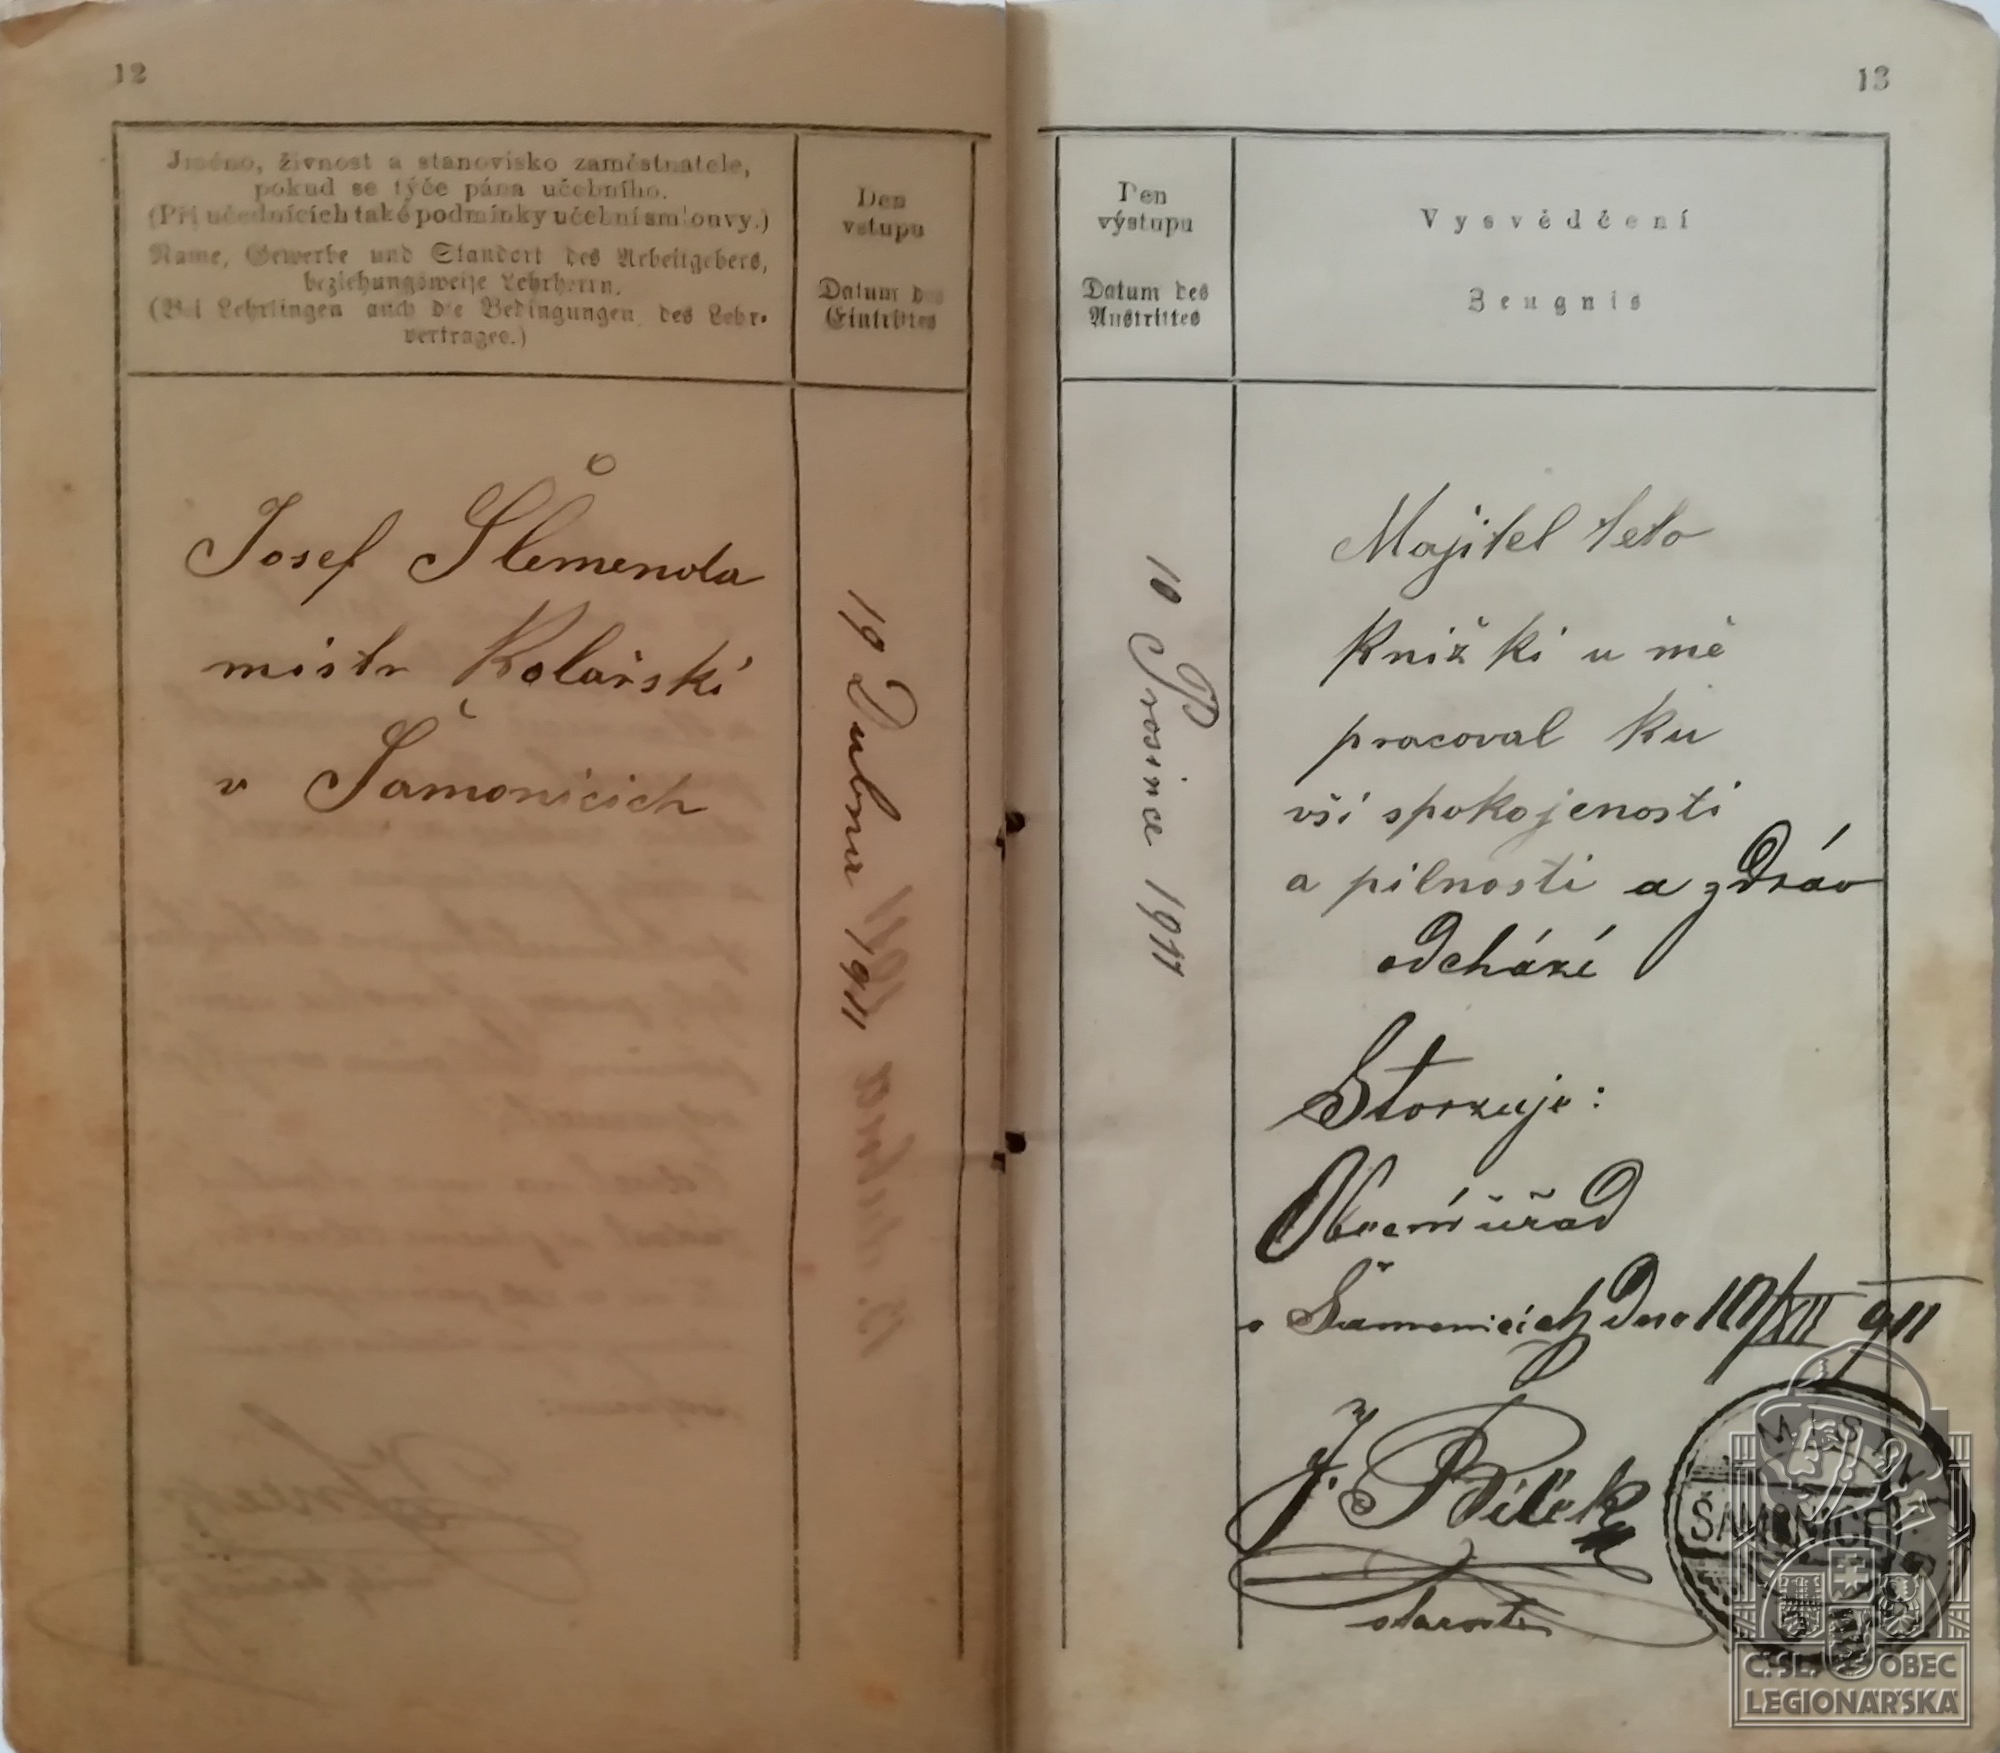 12
Jméno, živnost a stanovisko zaměstnatele,
pokud se týče pána učebního.
(Při učednících také podmínky učební smlouvy.)
Name, Gewerbe und Standort des Arbeitgebers,
beziehungsweise Lehrherrn.
(Bei Lehrlingen auch die Bedingungen des Lehr-
vertrages.)
Den
vstupu
Datum des
Eintrittes
Josef Šlemenda
mistr Kolářski
v Šamonicich
19 Dubna 1911
13
Den
výstupu
Datum des
Austrittes
Vysvědčení
Zeugnis
10 Prosince 1911
Majitel teto
knižki u mě
pracoval ku
vší spokojenosti
a pilnosti a zdráv
odchází
Stvrzuje:
Obecní úřad
v Šamonicích dne 10/XII 911
J. Bílek
starosta
MÍSTNÍ
ŠAMONICE
Č. SL. OBEC
LEGIONÁŘSKÁ